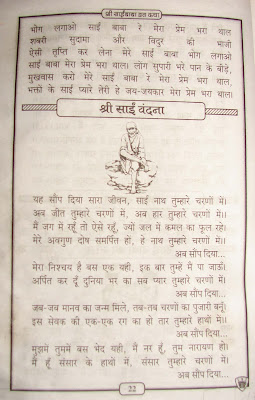 श्री साईंबाबा व्रत कथा
भोग लगाओ साईं बाबा रे मेरा प्रेम भरा थाल
शबरी सुदामा और विदुर की भाजी
ऐसी तृप्ति कर लेना मेरे साईं बाबा भोग लगाओ
साईं बाबा मेरा प्रेम भरा थाल। लोंग सुपारी भरे पान के बीड़े,
मुखवास करो मेरे साईं बाबा रे मेरा प्रेम भरा थाल,
भक्तो के साईं प्यारे तेरी हे जय-जयकार मेरा प्रेम भरा थाल।
श्री साईं वंदना
यह सौंप दिया सारा जीवन, साईं नाथ तुम्हारे चरणों में।
अब जीत तुम्हारे चरणों में, अब हार तुम्हारे चरणों में।।
मैं जग में रहूँ तो ऐसे रहूँ, ज्यों जल में कमल का फूल रहे।
मेरे अवगुण दोष समर्पित हो, हे नाथ तुम्हारे चरणों में।।
अब सौंप दिया...
मेरा निश्चय है बस एक यही, इक बार तुम्हे मैं पा जाऊँ।
अर्पित कर दूँ दुनिया भर का सब प्यार तुम्हारे चरणों में।।
अब सौंप दिया...
जब-जब मानव का जन्म मिले, तब-तब चरणों का पुजारी बनूँ।
इस सेवक की एक-एक रग का हो तार तुम्हारे हाथों में।।
अब सौंप दिया...
मुझमें तुममें बस भेद यही, मैं नर हूँ, तुम नारायण हो।
मैं हूँ संसार के हाथों में, संसार तुम्हारे चरणों में।।
अब सौंप दिया...
22